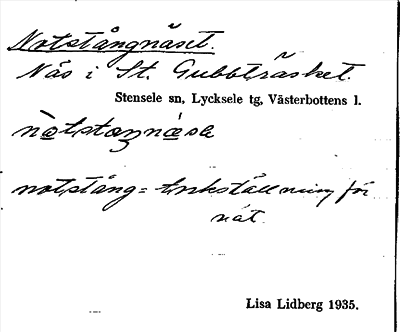 Notstångnäset.
Näs i St. Gubbträsket.
Stensele sn, Lycksele tg, Västerbottens l.
notstång = torkställning för
nät.
Lisa Lidberg 1935.